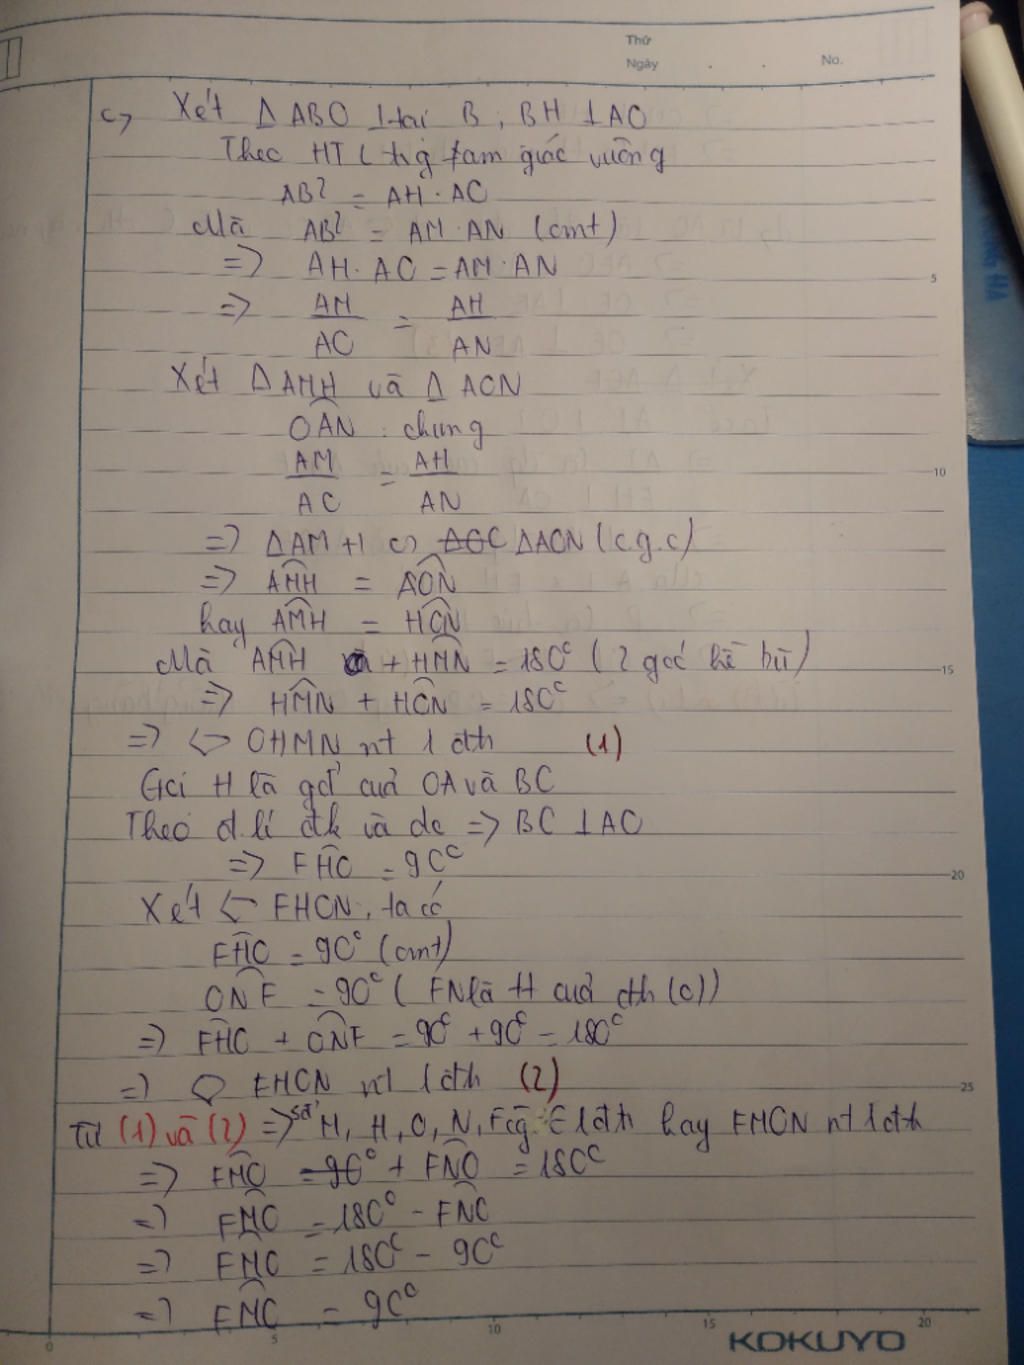 Thứ
Ngày . .
No.
c, Xét Δ ABO ⊥ tại B, BH ⊥ AO
Theo HTL trg tam giác vuông
AB² = AH . AO
Mà AB² = AM . AN (cmt)
=> AH . AO = AM . AN
5
=> AM/AO = AH/AN
Xét Δ AMH và Δ AON
OAN : chung
AM/AO = AH/AN
10
=> ΔAMH ∽ ΔAON (c.g.c)
=> AMH = AON
hay AMH = HON
Mà AMH + HMN = 180° (2 góc kề bù)
15
=> HMN + HON = 180°
=> OHMN nt 1 đth (1)
Gọi H là gđ' của OA và BC
Theo đ.lí đk và dc => BC ⊥ AO
=> FHO = 90°
20
Xét FHON, ta có
FHO = 90° (cmt)
ONF = 90° ( FN là tt của đth (O))
=> FHO + ONF = 90° + 90° = 180°
=> FHON nt 1 đth (2)
25
Từ (1) và (2) => 5đ' M, H, O, N, F cg ∈ 1 đth hay FMON nt 1 đth
=> FMO + FNO = 180°
=> FMO = 180° - FNO
=> FMO = 180° - 90°
=> FMO = 90°
0 5 10 15 20
KOKUYO